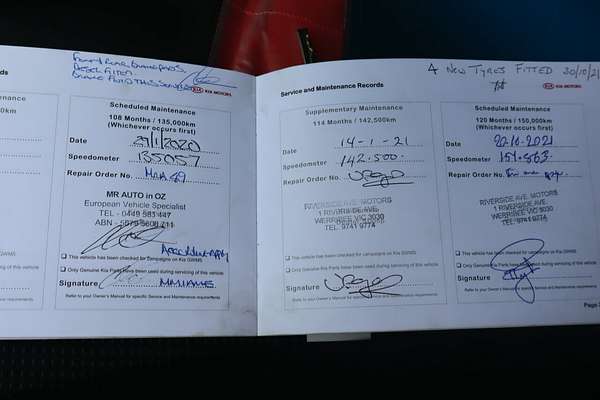 Front Rear Brake Pads
Diesel Filter
Brake Fluid This Service
KIA MOTORS
Records
Scheduled Maintenance
108 Months / 135,000km
(Whichever occurs first)
Date 29/1/2020
Speedometer 135057
Repair Order No.
MR AUTO in OZ
European Vehicle Specialist
TEL - 0449
ABN -
This vehicle has been checked for campaigns on Kia GWMS
Only Genuine Kia Parts have been used during servicing of this vehicle
Signature
Refer to your Owner's Manual for specific Service and Maintenance requirements
Service and Maintenance Records
4 New Tyres Fitted 30/10/21
KIA MOTORS
Supplementary Maintenance
114 Months / 142,500km
Date 14-1-21
Speedometer 142.500.
Repair Order No.
RIVERSIDE AVE. MOTORS
1 RIVERSIDE AVE
WERRIBEE VIC 3030
TEL. 9741 9774
This vehicle has been checked for campaigns on Kia GWMS
Only Genuine Kia Parts have been used during servicing of this vehicle
Signature
Refer to your Owner's Manual for specific Service and Maintenance requirements
Scheduled Maintenance
120 Months / 150,000km
(Whichever occurs first)
Date
Speedometer 151.563.
Repair Order No.
RIVERSIDE AVE. MOTORS
1 RIVERSIDE AVE
WERRIBEE VIC 3030
TEL. 9741 9774
This vehicle has been checked for campaigns on Kia GWMS
Only Genuine Kia Parts have been used during servicing of this vehicle
Signature
Refer to your Owner's Manual for specific Service and Maintenance requirements
Page